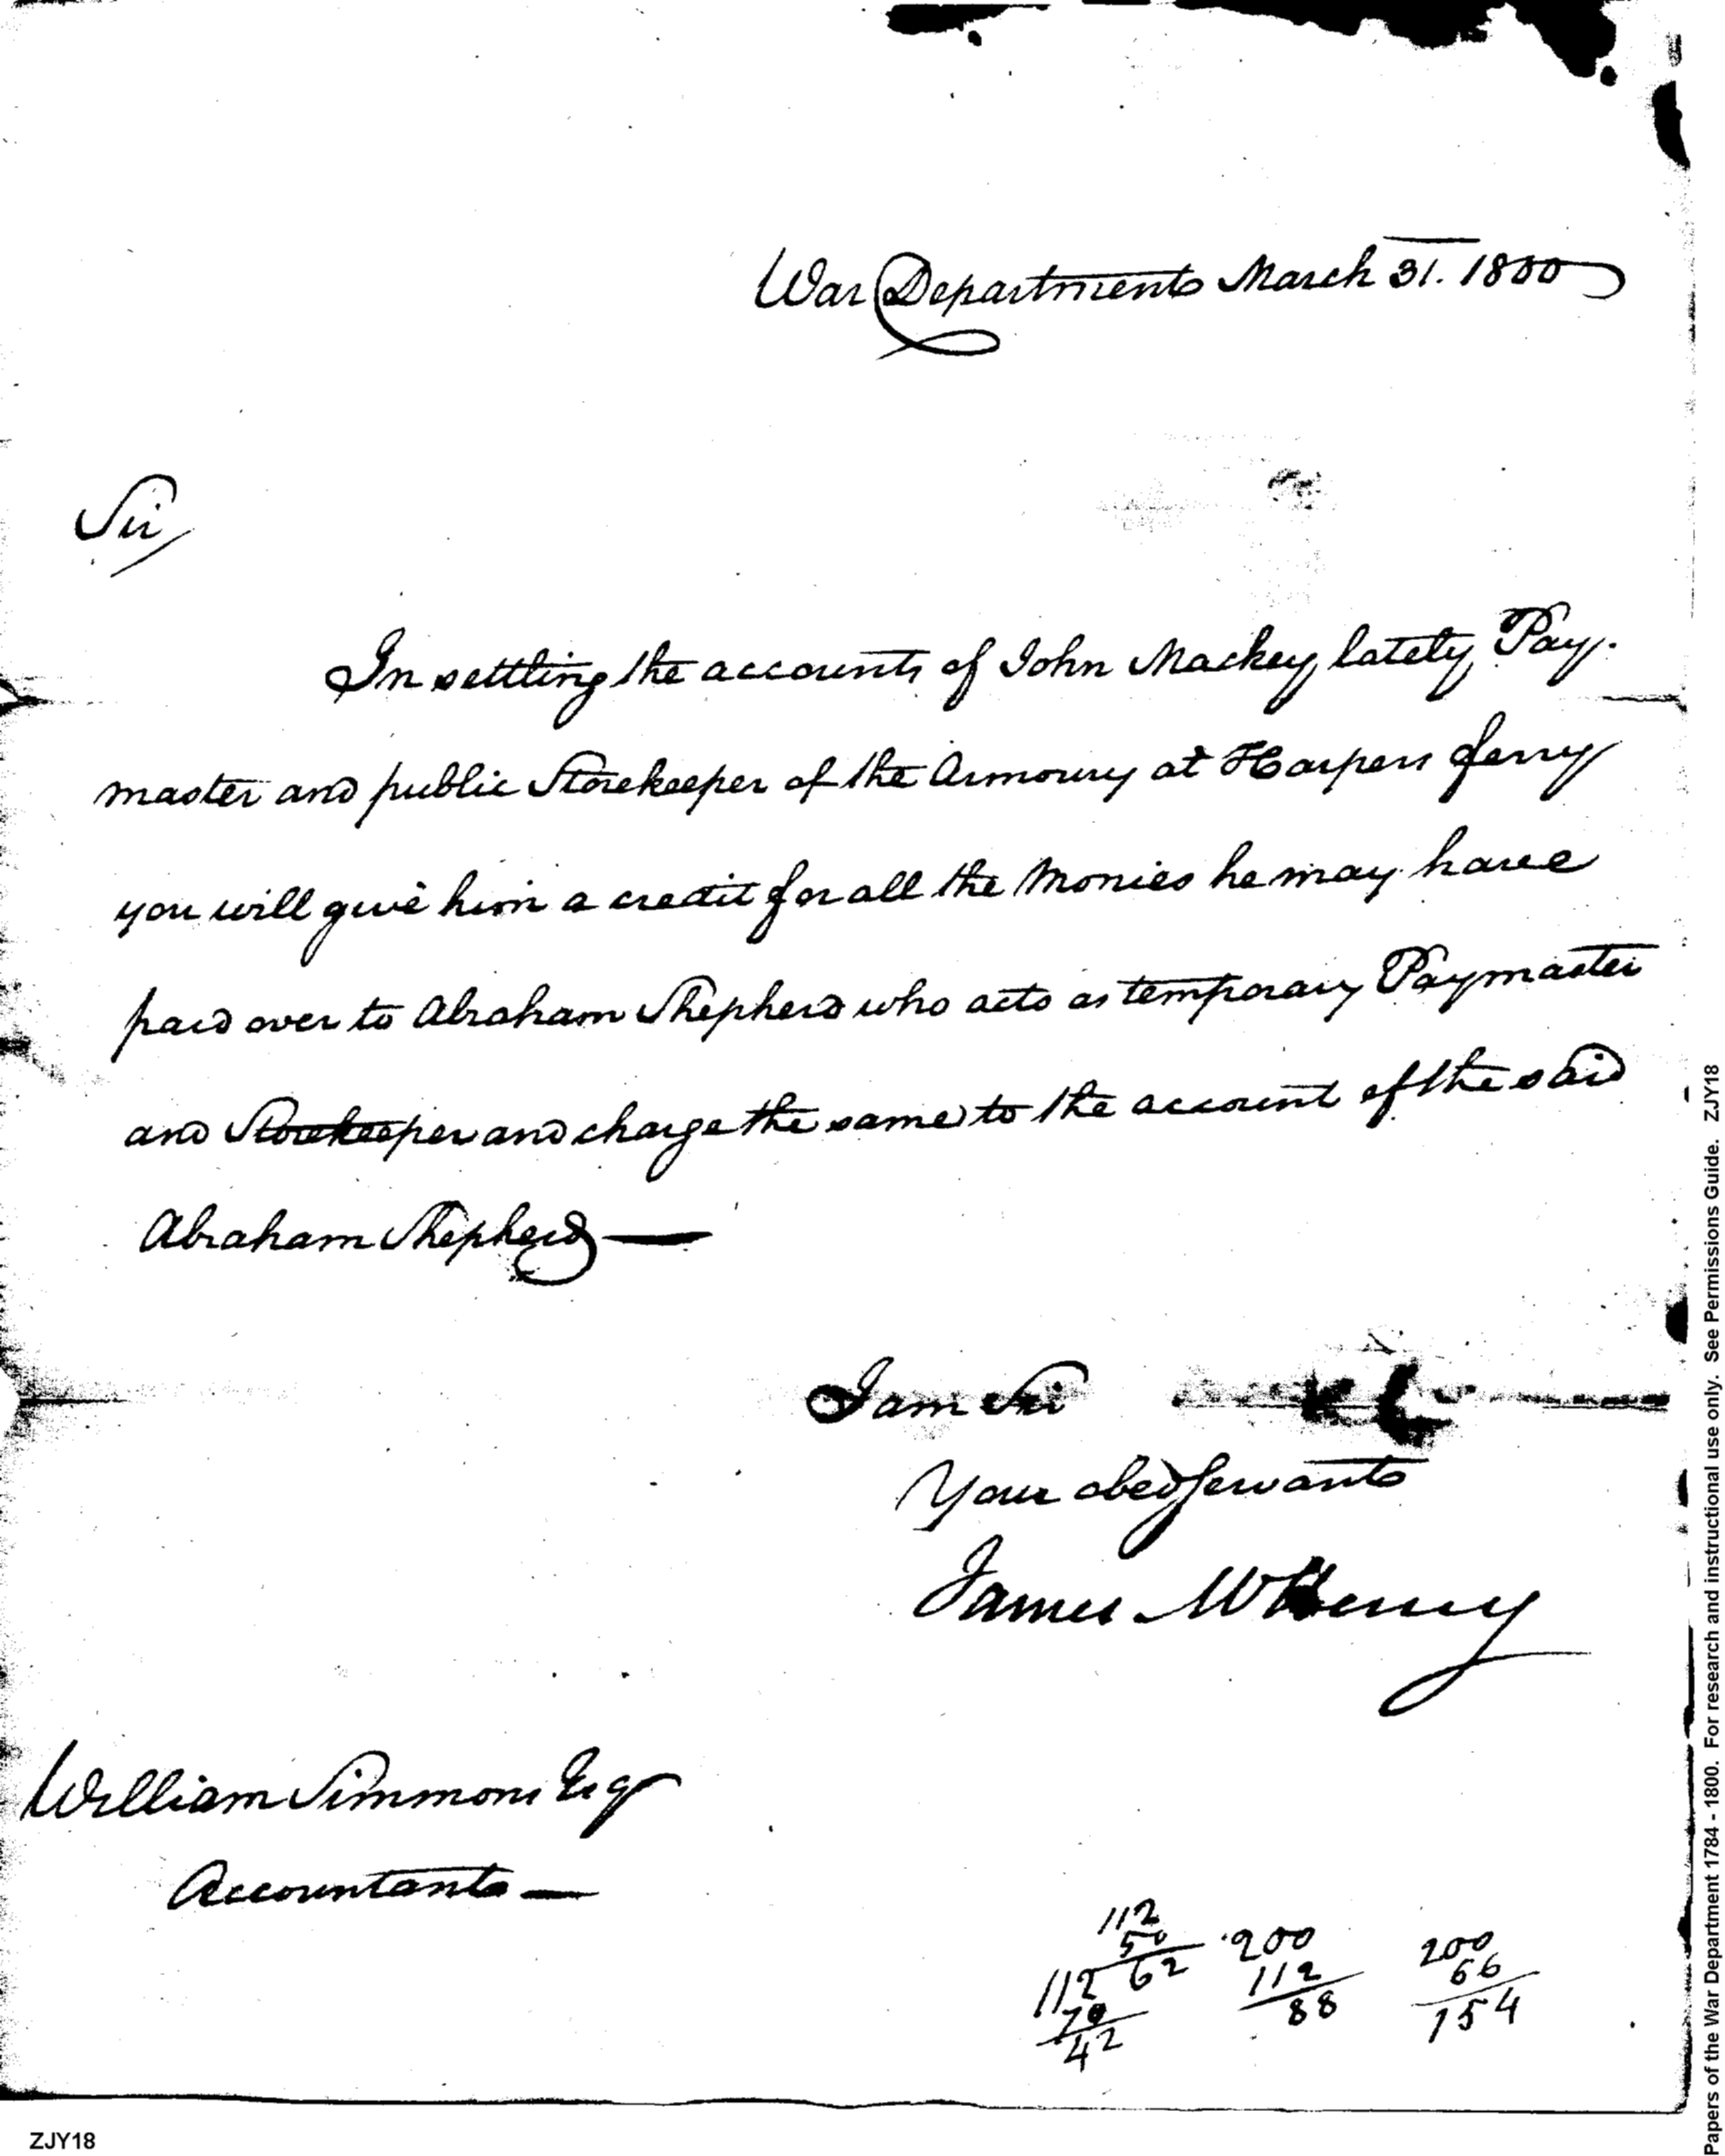 War Department March 31. 1800
Sir,
In settling the accounts of John Mackey, lately Pay-
master and public Storekeeper of the Armoury at Harpers ferry
you will give him a credit for all the Monies he may have
paid over to Abraham Shepherd who acts as temporary Paymaster
and Storekeeper and charge the same to the account of the said
Abraham Shepherd —
I am Sir
Your obed Servant
James McHenry
William Simmons Esqr
Accountant —
112
50
62
112
70
42
200
112
88
200
66
154
ZJY18
Papers of the War Department 1784 - 1800. For research and instructional use only. See Permissions Guide. ZJY18